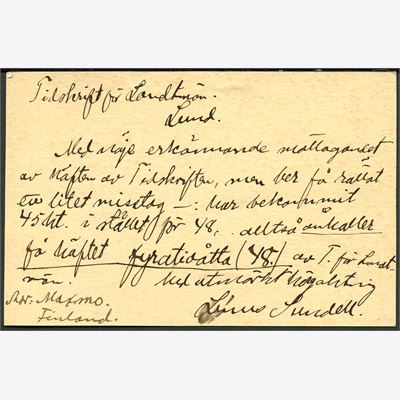 Tidskrift för Landtmän.
Lund.
Med nöje erkännande mottagandet
av häften av Tidskriften, men ber få rättat
ett litet misstag —: har bekommit
45 ht. i stället för 48, alltså anhåller
få häftet fyratioåtta (48.) av T. för Landt-
män.
Med utmärkt högaktning
Linus Sundell.
Adr: Maxmo.
Finland.